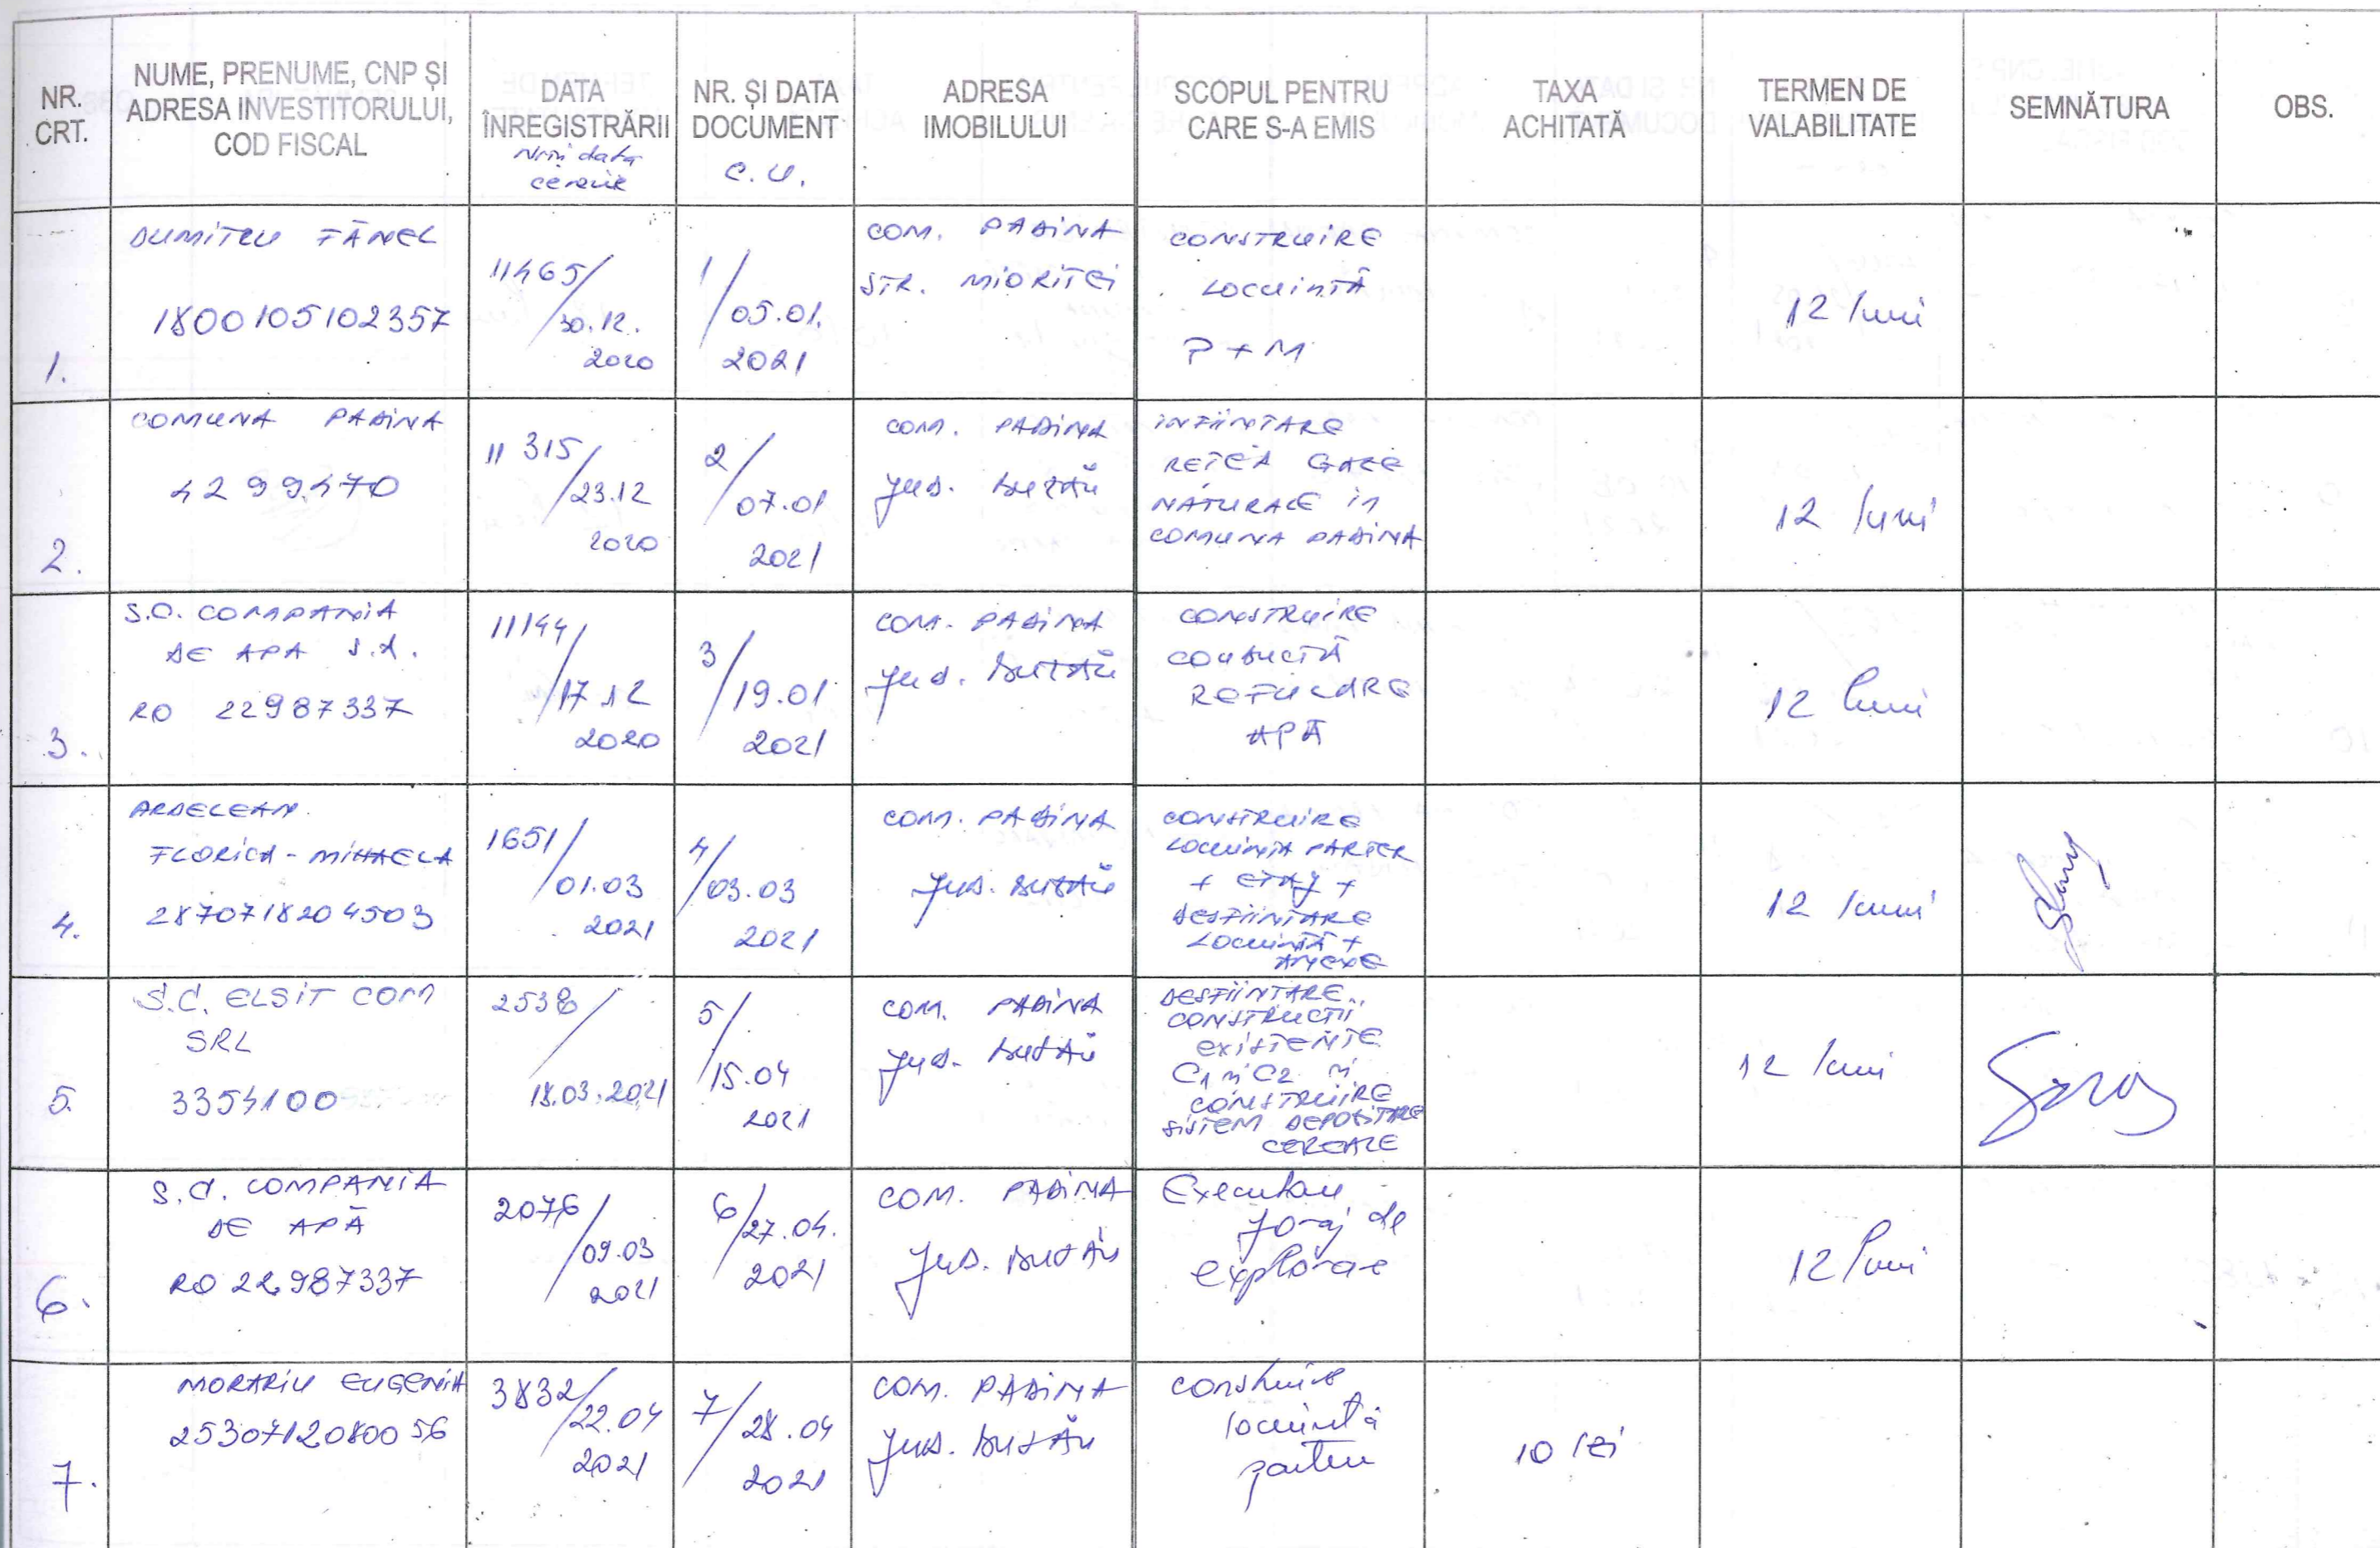 NR. CRT.
NUME, PRENUME, CNP ȘI
ADRESA INVESTITORULUI,
COD FISCAL
DATA
ÎNREGISTRĂRII
Nr și data
cerere
NR. ȘI DATA
DOCUMENT
C.U.
ADRESA
IMOBILULUI
SCOPUL PENTRU
CARE S-A EMIS
TAXA
ACHITATĂ
TERMEN DE
VALABILITATE
SEMNĂTURA
OBS.
1.
DUMITRU FĂNEL
1800105102357
11465/
30.12.
2020
1/
05.01.
2021
COM. PADINA
STR. MIORITEI
CONSTRUIRE
LOCUINTĂ
P + M
12 luni
2.
COMUNA PADINA
4299470
11315/
23.12
2020
2/
07.01
2021
COM. PADINA
Jud. BUZĂU
INFIINTARE
RETEA GAZE
NATURALE IN
COMUNA PADINA
12 luni
3.
S.C. COMPANIA
DE APA S.A.
RO 22987337
11144/
17.12
2020
3/
19.01
2021
COM. PADINA
Jud. BUZĂU
CONSTRUIRE
CONDUCTĂ
REFULARE
APĂ
12 luni
4.
ARDELEAN
FLORICA-MIHAELA
2870718204503
1651/
01.03
2021
4/
03.03
2021
COM. PADINA
Jud. BUZĂU
CONSTRUIRE
LOCUINTA PARTER
+ ETAJ +
DESFIINTARE
LOCUINTĂ +
ANEXE
12 luni
5.
S.C. ELSIT COM
SRL
3354100
2538/
18.03.2021
5/
15.04
2021
COM. PADINA
Jud. BUZĂU
DESFIINTARE
CONSTRUCTII
EXISTENTE
C1 și C2 și
CONSTRUIRE
SISTEM DEPOZITARE
CEREALE
12 luni
6.
S.C. COMPANIA
DE APĂ
RO 22987337
2076/
09.03
2021
6/27.04.
2021
COM. PADINA
Jud. BUZĂU
Executare
foraj de
explorare
12 luni
7.
MORARIU EUGENIA
2530712080056
3832/
22.04
2021
7/
28.04
2021
COM. PADINA
Jud. BUZĂU
construire
locuintă
parter
10 lei